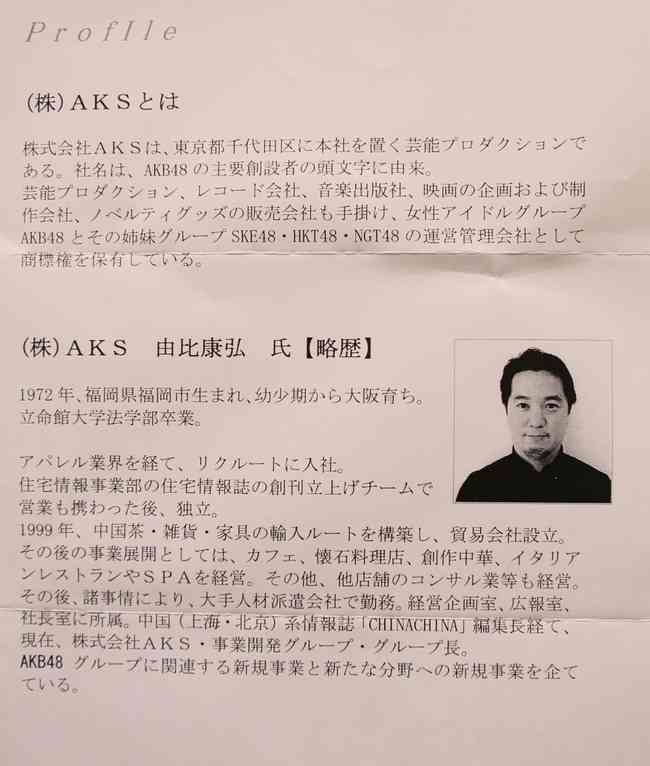 ProfIle
(株)ＡＫＳとは
株式会社ＡＫＳは、東京都千代田区に本社を置く芸能プロダクションで
ある。社名は、AKB48 の主要創設者の頭文字に由来。
芸能プロダクション、レコード会社、音楽出版社、映画の企画および制
作会社、ノベルティグッズの販売会社も手掛け、女性アイドルグループ
AKB48 とその姉妹グループ SKE48・HKT48・NGT48 の運営管理会社として
商標権を保有している。
(株)ＡＫＳ　由比康弘　氏【略歴】
1972 年、福岡県福岡市生まれ、幼少期から大阪育ち。
立命館大学法学部卒業。
アパレル業界を経て、リクルートに入社。
住宅情報事業部の住宅情報誌の創刊立上げチームで
営業も携わった後、独立。
1999 年、中国茶・雑貨・家具の輸入ルートを構築し、貿易会社設立。
その後の事業展開としては、カフェ、懐石料理店、創作中華、イタリア
ンレストランやＳＰＡを経営。その他、他店舗のコンサル業等も経営。
その後、諸事情により、大手人材派遣会社で勤務。経営企画室、広報室、
社長室に所属。中国（上海・北京）系情報誌「CHINACHINA」編集長経て、
現在、株式会社ＡＫＳ・事業開発グループ・グループ長。
AKB48 グループに関連する新規事業と新たな分野への新規事業を企て
ている。